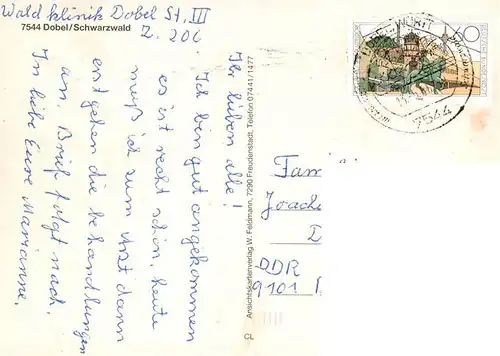 Wald klinik Dobel St. III
Z. 206
7544 Dobel/Schwarzwald
Ihr lieben alle!
Ich bin gut angekommen
es ist recht schön, heute
muß ich zum Arzt dann
erst gehen die behandlungen
an, Brief folgt nach.
In liebe Eure Marianne.
Ansichtskartenverlag W. Feldmann, 7290 Freudenstadt, Telefon 07441/1477
CL
60
7544
Fam
Joach
DDR
9101